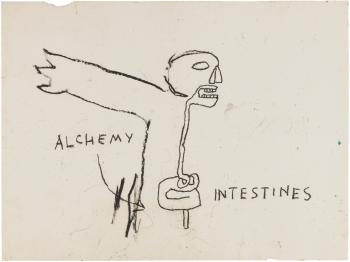 ALCHEMY
INTESTINES